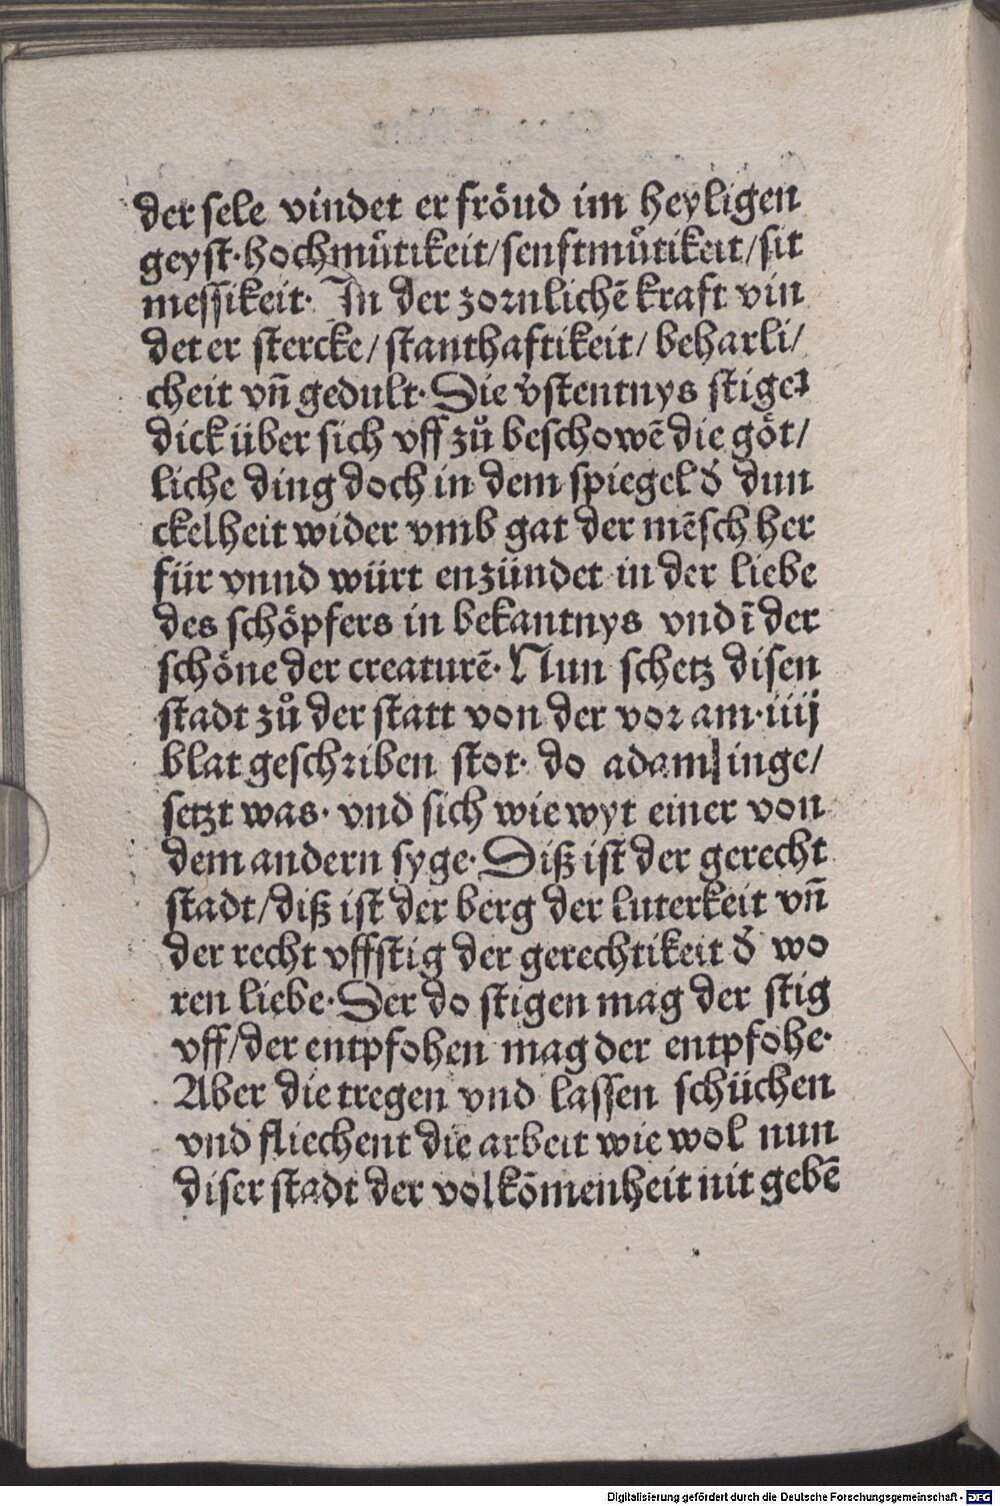 der sele vindet er fröud im heyligen
geyst·hochmuͤtikeit/senftmuͤtikeit/sit
messikeit· In der zornlichē kraft vin
det er stercke/stanthaftikeit/beharli/
cheit vn̄ gedult·Die v̓stentnys stiget
dick über sich vff zů beschowē die göt/
liche ding doch in dem spiegel d̓ dun
ckelheit wider vmb gat der mēsch her
für vnnd würt enzündet in der liebe
des schöpfers in bekantnys vnd ī der
schöne der creaturē· Nun schetz disen
stadt zů der statt von der vor am·iiij
blat geschriben stot· do adam inge/
setzt was· vnd sich wie wyt einer von
dem andern syge·Diß ist der gerecht
stadt/diß ist der berg der luterkeit vn̄
der recht vffstig der gerechtikeit d̓ wo
ren liebe·Der do stigen mag der stig
vff/der entpfohen mag der entpfohe·
Aber die tregen vnd lassen schüchen
vnd fliechent die arbeit wie wol nun
diser stadt der volkōmenheit nit gebē
Digitalisierung gefördert durch die Deutsche Forschungsgemeinschaft - DFG